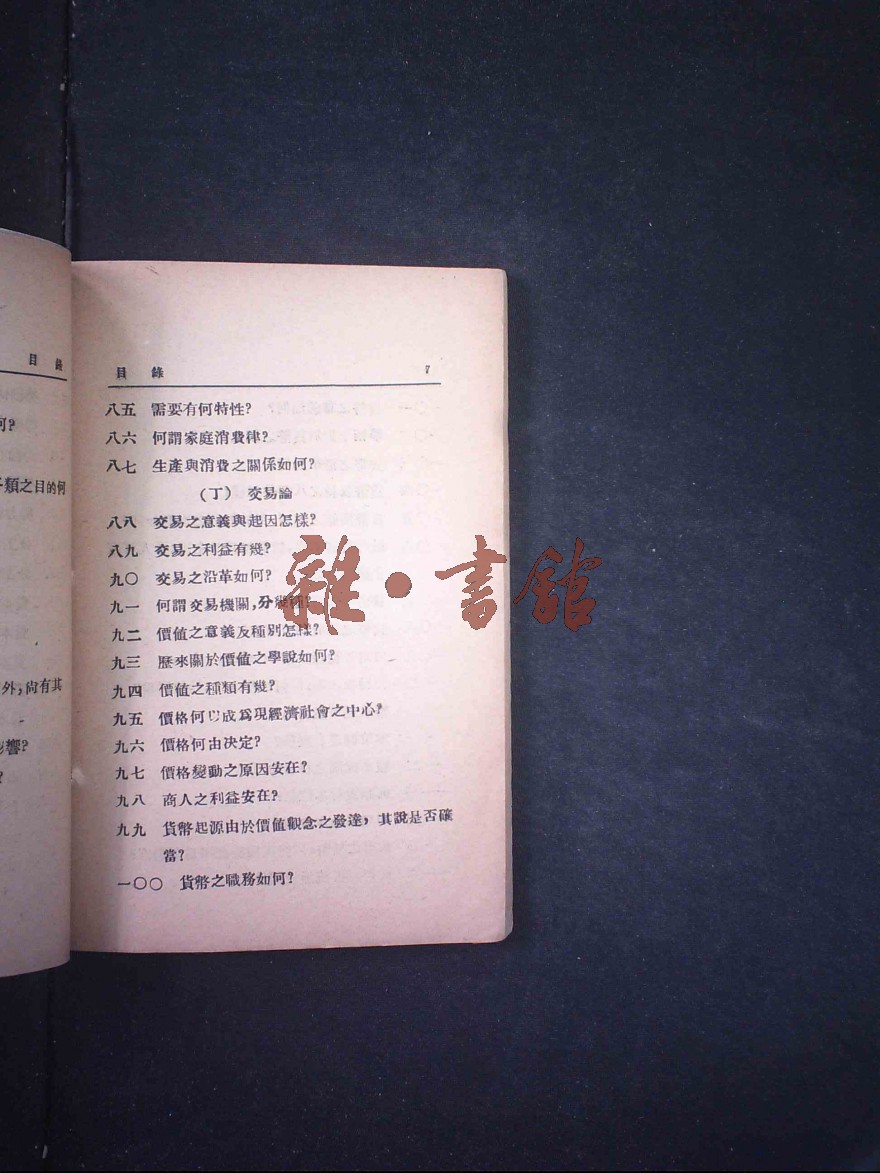 目錄
何?
類之目的何
外,尙有其
響?
?
目錄 7
八五 需要有何特性?
八六 何謂家庭消費律?
八七 生產與消費之關係如何?
(丁) 交易論
八八 交易之意義與起因怎樣?
八九 交易之利益有幾?
九〇 交易之沿革如何?
九一 何謂交易機關,分幾種?
九二 價値之意義及種別怎樣?
九三 歷來關於價値之學說如何?
九四 價値之種類有幾?
九五 價格何以成爲現經濟社會之中心?
九六 價格何由決定?
九七 價格變動之原因安在?
九八 商人之利益安在?
九九 貨幣起源由於價値觀念之發達,其說是否確
當?
一〇〇 貨幣之職務如何?
雜·書館